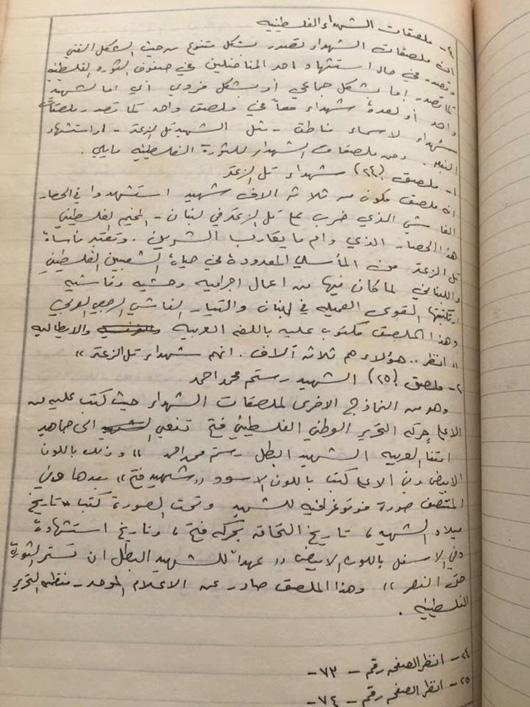 ٢- ملصقات الشهداء الفلسطينية
ان ملصقات الشهداء تصدر بشكل متنوع من حيث الشكل الفني
وتصدر في حال استشهاد احد المناضلين في صفوف الثورة الفلسطينية
تصدر اما بشكل جماعي أو بشكل فردي أي اما لشهيد
واحد أو لعدة شهداء معاً في ملصق واحد كما تصدر ملصقات
شهداء لاسماء مناطق - مثل الشهيد تل الزعتر - او استشهاد
ومن ملصقات الشهداء للثورة الفلسطينية مايلي.
١- ملصق (٢٤) شهداء تل الزعتر
ان ملصق مكون من ثلاثة الاف شهيد استشهدوا في الحصار
الفاشي الذي ضرب على تل الزعتر في لبنان - المخيم الفلسطيني
هذا الحصار الذي دام ما يقارب الشهرين. وتعتبر مأساة
تل الزعتر من المآسي المعدودة في حياة الشعبين الفلسطيني
واللبناني لما كان فيها من اعمال اجرامية وحشية وفاشية
ارتكبتها القوى العميلة في لبنان والتيار الفاشي الرجعي العربي
وهذا الملصق مكتوب عليه باللغة العربية والايطالية
" انظر .. هؤلاء هم ثلاثة آلاف. انهم شهداء تل الزعتر "
٢- ملصق (٢٥) الشهيد رستم محمد احمد
وهو من النماذج الاخرى لملصقات الشهداء حيث كتب عليه من
الاعلى حركة التحرير الوطني الفلسطيني فتح تنعي الى جماهير
امتنا العربية الشهيد البطل رستم محمد احمد " وذلك باللون
الابيض وفي الاعلى كتب باللون الاسود " شهيد فتح " بعدها وفي
المنتصف صورة فوتوغرافية للشهيد وتحت الصورة كتب " تاريخ
ميلاد الشهيد، تاريخ التحاقة بحركة فتح، وتاريخ استشهادة
وفي الاسفل باللون الابيض " عهداً للشهيد البطل ان تستمر الثورة
حتى النصر " وهذا الملصق صادر عن الاعلام الموحد - منظمة التحرير
الفلسطينية.
٢٤- انظر الصفحة رقم - ٧٣ -
٢٥- انظر الصفحة رقم - ٧٤ -